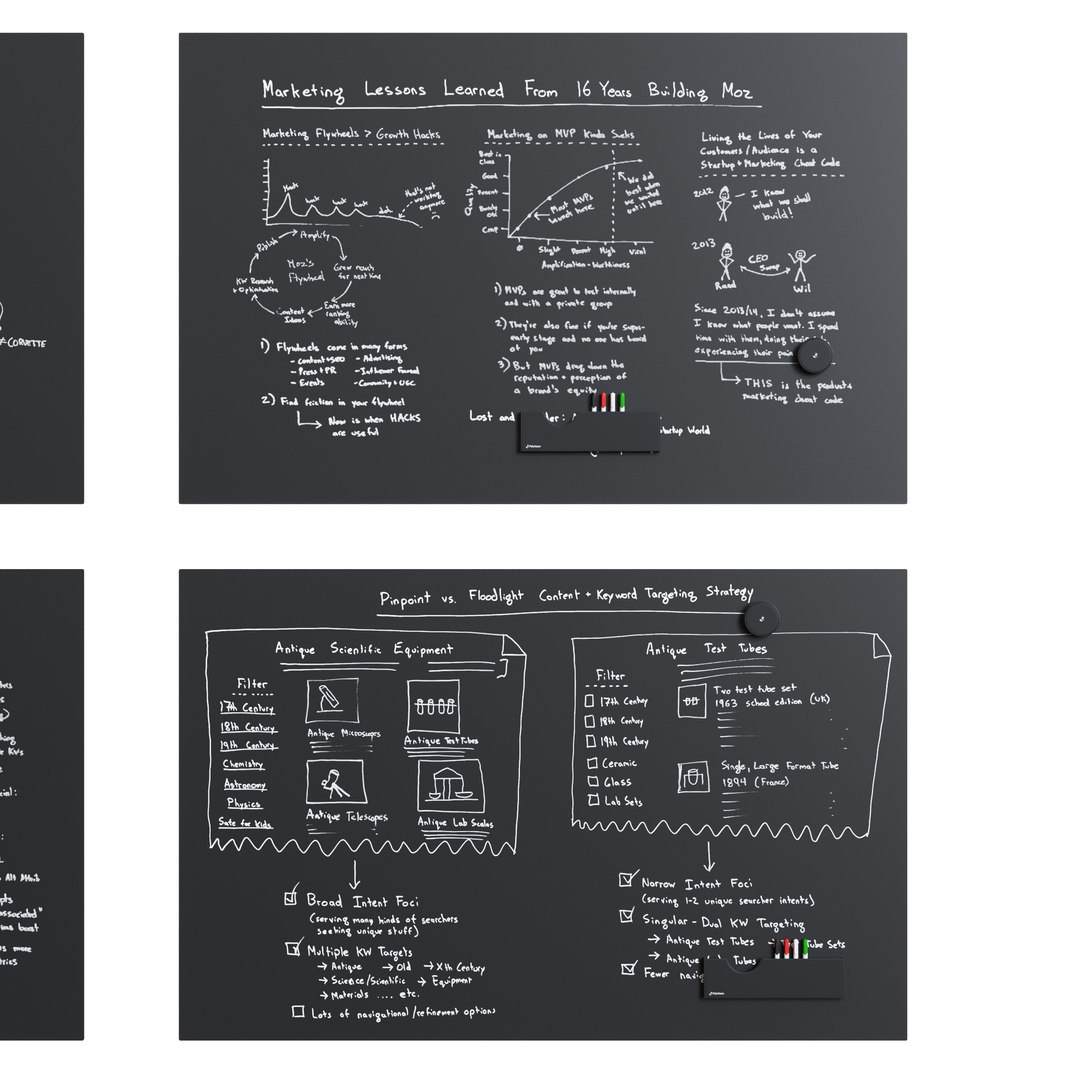 Marketing Lessons Learned From 16 Years Building Moz
Marketing Flywheels > Growth Hacks
Hack
hack
hack
hack
that's not
working
anymore
Publish
Amplify
Grow reach
for next time
Earn more
ranking
ability
Content
Ideas
KW Research
+ Optimization
Moz's
Flywheel
1) Flywheels come in many forms
- content+SEO
- Advertising
- Press+PR
- Events
- Community+UGC
2) Find friction in your flywheel
Now is when HACKS
are useful
Marketing an MVP Kinda Sucks
Quality
Best in
Class
Good
Decent
Barely
OK
Crap
Most MVPs
launch here
We did
best when
we waited
until here
Ø Slight Decent High Viral
Amplification-Worthiness
1) MVPs are great to test internally
and with a private group
2) They're also fine if you're super-
early stage and no one has heard
of you
3) But MVPs drag down the
reputation + perception of
a brand's equity
Lost and
der:
Startup World
Living the Lives of Your
Customers/Audience is a
Startup + Marketing Cheat Code
2012
I know
what we shall
build!
2013
CEO
Swap
Rand
Wil
Since 2013/14, I don't assume
I know what people want. I spend
time with them, doing their
experiencing their pain
THIS is the product+
marketing cheat code
CORVETTE
Pinpoint vs. Floodlight Content + Keyword Targeting Strategy
Antique Scientific Equipment
Filter
17th Century
18th Century
19th Century
Chemistry
Astronomy
Physics
Safe for Kids
Antique Microscopes
Antique Test Tubes
Antique Telescopes
Antique Lab Scales
Broad Intent Foci
(serving many kinds of searchers
seeking unique stuff)
Multiple KW Targets
→ Antique → Old → Xth Century
→ Science/Scientific → Equipment
→ Materials .... etc.
Lots of navigational/refinement options
Antique Test Tubes
Filter
17th Century
18th Century
19th Century
Ceramic
Glass
Lab Sets
Two test tube set
1963 school edition (UK)
Single, Large Format Tube
1894 (France)
Narrow Intent Foci
(serving 1-2 unique searcher intents)
Singular-Dual KW Targeting
→ Antique Test Tubes → Tube Sets
→ Antique Tubes
Fewer
KWs
Alt Attrib
associated"
boost
more